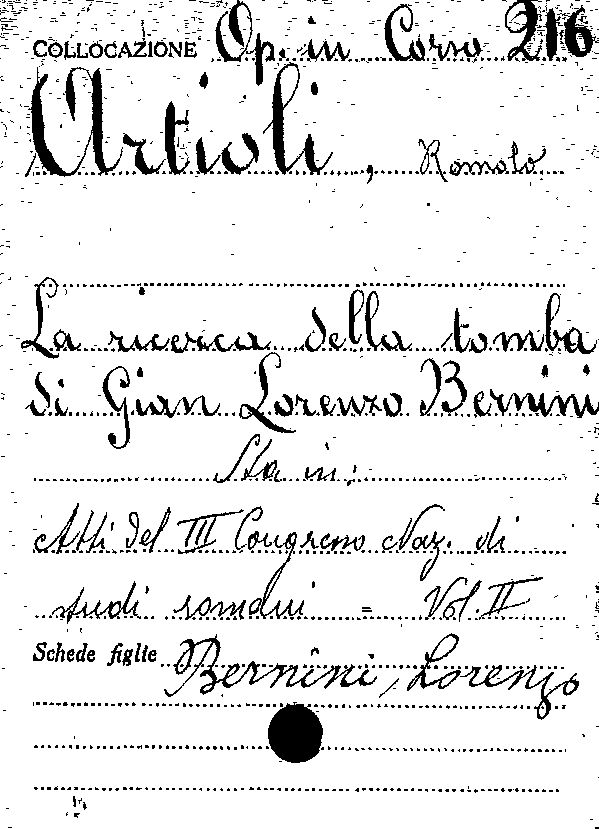 COLLOCAZIONE Op. in Corso 216
Artioli, Romolo
La ricerca della tomba
di Gian Lorenzo Bernini
Sta in:
Atti del III Congresso Naz. di
studi romani = Vol. II
Schede figlie Bernini, Lorenzo